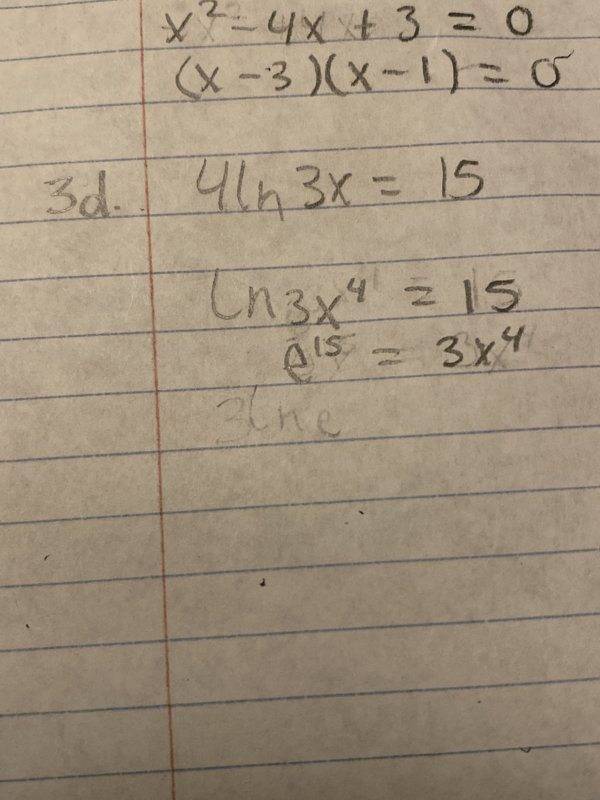 x² - 4x + 3 = 0
(x - 3)(x - 1) = 0
3d. 4ln 3x = 15
ln 3x⁴ = 15
e¹⁵ = 3x⁴
3lne